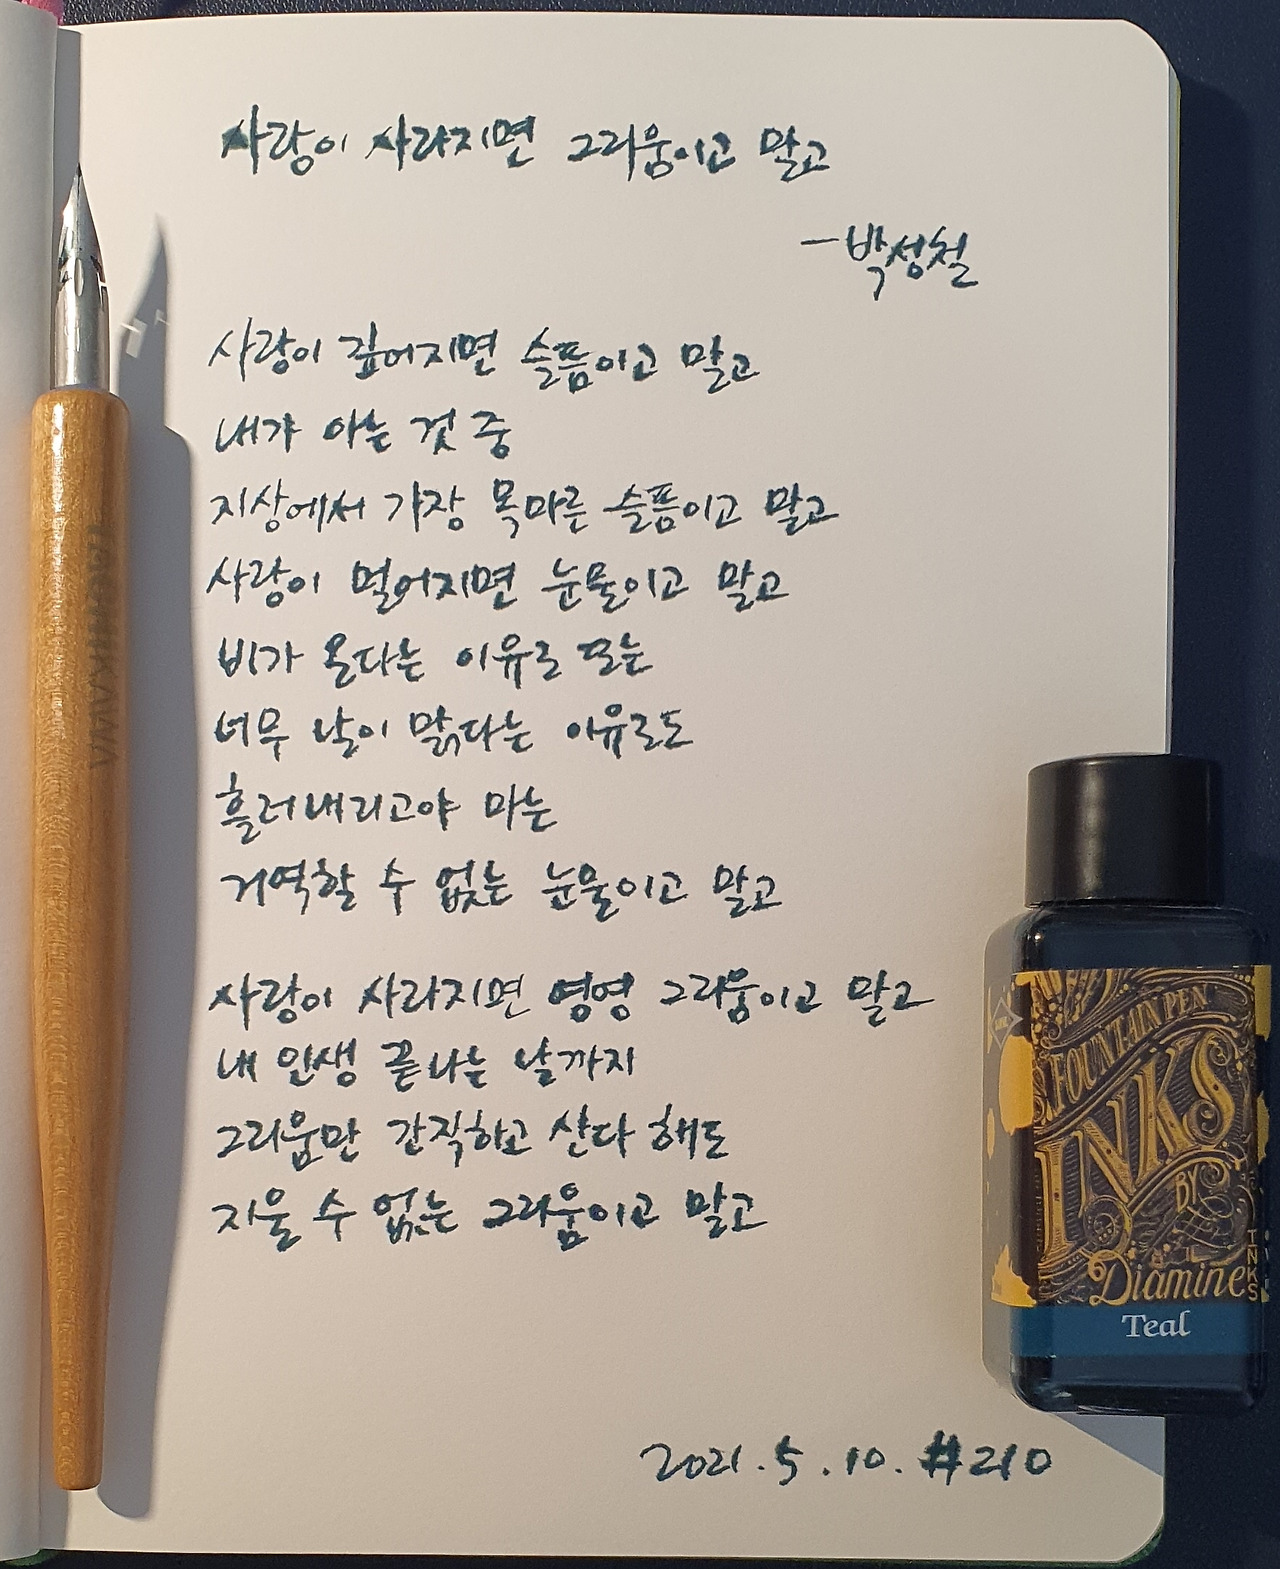 사랑이 사라지면 그리움이고 말고
-박성철
사랑이 깊어지면 슬픔이고 말고
내가 아는 것 중
지상에서 가장 목마른 슬픔이고 말고
사랑이 멀어지면 눈물이고 말고
비가 온다는 이유로 또는
너무 날이 맑다는 이유로도
흘러내리고야 마는
거역할 수 없는 눈물이고 말고
사랑이 사라지면 영영 그리움이고 말고
내 인생 끝나는 날까지
그리움만 간직하고 산다 해도
지울 수 없는 그리움이고 말고
2021.5.10. #210
TACHIKAWA
FOUNTAIN PEN
INKS
BY
Diamine
INKS
Teal